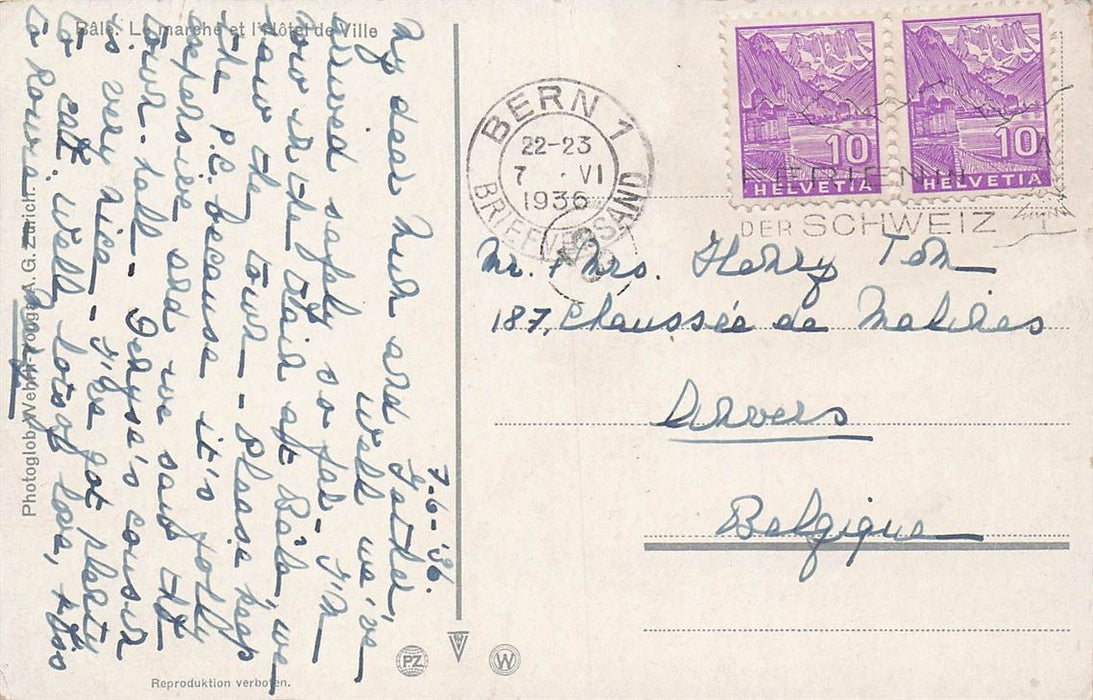 Bâle. Le marché et l'Hôtel de Ville
7-6-'36.
My dear Mum and Father,
Well we've
arrived safely so far - I'm
now in the train at Bâle, we
saw the town - Please keep
the P.C. because it's jolly
expensive and we said the
town-hall - Denyse's cousin
is very nice - I've got plenty
to eat. Well lots of love, kiss
to Rowie
BERN 1
22-23
7. VI
1936
BRIEFVERSAND
10
HELVETIA
10
HELVETIA
DER SCHWEIZ
Mr. & Mrs. Henry Ton
187, Chaussée de Malines
Anvers
Belgique
Photoglob-Wehrli-Vouga A. G. Zürich.
Reproduktion verboten.
PZ
W